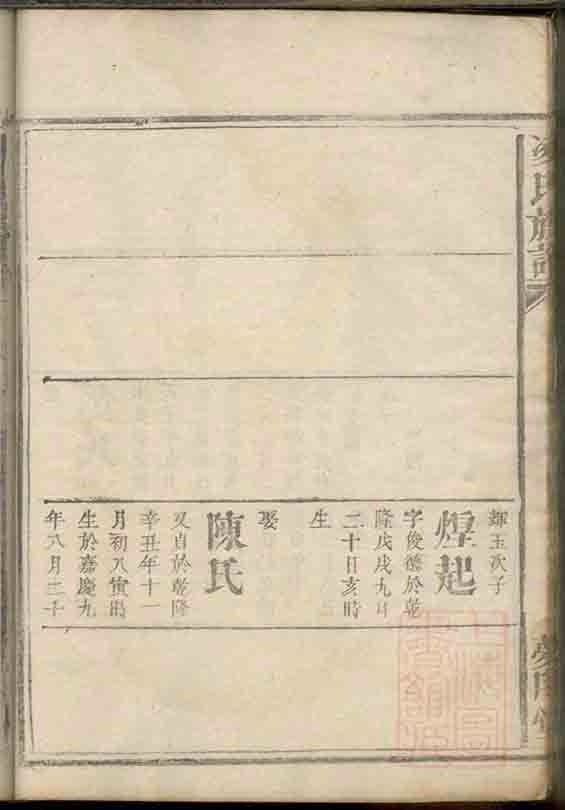 氏族譜
輝玉次子
煌起
字俊德於乾
隆戊戌九月
二十日亥時
生
娶
陳氏
又貞於乾隆
辛丑年十一
月初八寅時
生於嘉慶九
年八月二十